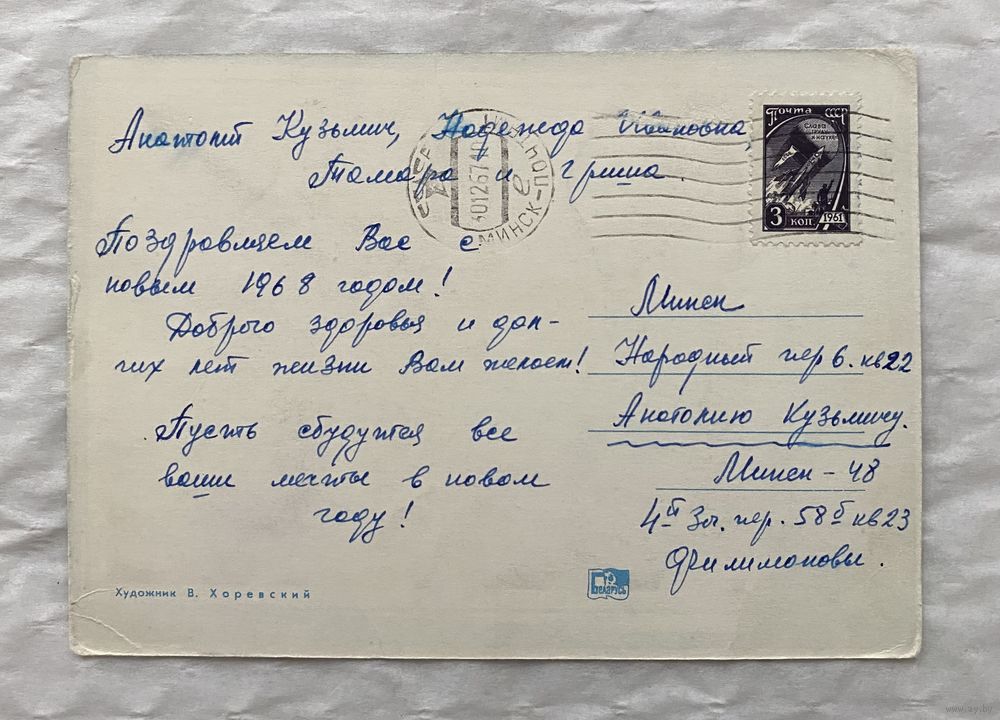 Анатолий Кузьмич, Надежда Ивановна
Тамара и Гриша.
Поздравляем Вас с
новым 1968 годом!
Доброго здоровья и дол-
гих лет жизни Вам желаем!
Пусть сбудутся все
ваши мечты в новом
году!
Художник В. Хоревский
МИНСК
ПОЧТАМТ
301267
Почта СССР
Слава
науке
3 коп
1961
Минск
Народный пер 6. кв 22
Анатолию Кузьмичу.
Минск - 48
4й Зл. пер. 58б кв 23
Филимоновы.
Беларусь
www.ay.by